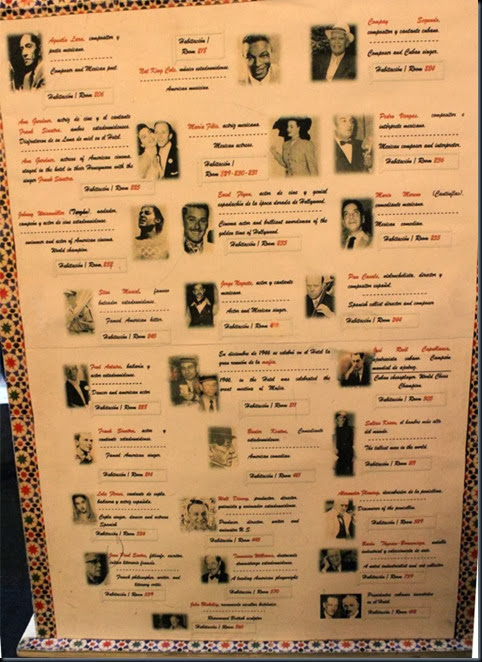 Agustín Lara, compositor y
poeta mexicano.
Composer and Mexican poet.
Habitación / Room 206
Habitación /
Room 218
Nat King Cole, músico estadounidense.
American musician.
Compay Segundo,
compositor y cantante cubano.
Composer and Cuban singer.
Habitación / Room 224
Ava Gardner, actriz de cine y el cantante
Frank Sinatra, ambos estadounidenses.
Disfrutaron de su Luna de miel en el Hotel.
Ava Gardner, actress of American cinema,
stayed in the hotel in their Honeymoon with the
singer Frank Sinatra.
Habitación / Room 225
María Félix, actriz mexicana.
Mexican actress.
Habitación / Room
Pedro Vargas, compositor e
intérprete mexicano.
Mexican composer and interpreter.
Habitación / Room 236
Johnny Weissmuller (Tarzán), nadador,
campeón y actor de cine estadounidense.
swimmer and actor of American cinema.
World champion.
Habitación / Room 232
Errol Flynn, actor de cine y genial
espadachín de la época dorada de Hollywood.
Cinema actor and brilliant swordsman of the
golden time of Hollywood.
Habitación / Room 235
Mario Moreno (Cantinflas),
comediante mexicano.
Mexican comedian.
Habitación / Room 235
Stan Musial, famoso
bateador estadounidense.
Famed American hitter.
Habitación / Room 245
Jorge Negrete, actor y cantante
mexicano.
Actor and Mexican singer.
Habitación / Room
Pau Casals, violonchelista, director y
compositor español.
Spanish cellist director and composer.
Habitación / Room 244
Fred Astaire, bailarín y
actor estadounidense.
Dancer and American actor
Habitación / Room 228
En diciembre de 1946 se celebró en el Hotel la
gran reunión de la mafia.
1946, in the Hotel was celebrated the
great meeting of Mafia.
Habitación / Room 211
José Raúl Capablanca,
ajedrecista cubano. Campeón
mundial de ajedrez.
Cuban chessplayer. World Chess
Champion.
Habitación / Room
Frank Sinatra, actor y
cantante estadounidense.
Famed American singer.
Habitación / Room 214
Buster Keaton, Comediante
estadounidense.
American comedian.
Habitación / Room
Sultan Kosen, el hombre más alto
del mundo.
The tallest man in the world.
Habitación / Room 211
Lola Flores, cantante de copla,
bailaora y actriz española.
Copla singer, dancer and actress
Spanish
Habitación / Room
Walt Disney, productor, director,
guionista y animador estadounidense.
Producer, director, writer and
animator U.S.
Habitación / Room
Alexander Fleming, descubridor de la penicilina.
Discoverer of the penicillin.
Habitación / Room
Jean Paul Sartre, filósofo, escritor,
crítico literario francés.
French philosopher, writer, and
literary critic.
Habitación / Room 539
Tennessee Williams, destacado
dramaturgo estadounidense.
A leading American playwright
Habitación / Room
Barón Thyssen-Bornemisza,
industrial y coleccionista de arte.
A noted industrialist and art collector.
Habitación / Room
Presidentes cubanos
en el Hotel
Habitación / Room
británico.
Renowned British sculptor
Habitación / Room